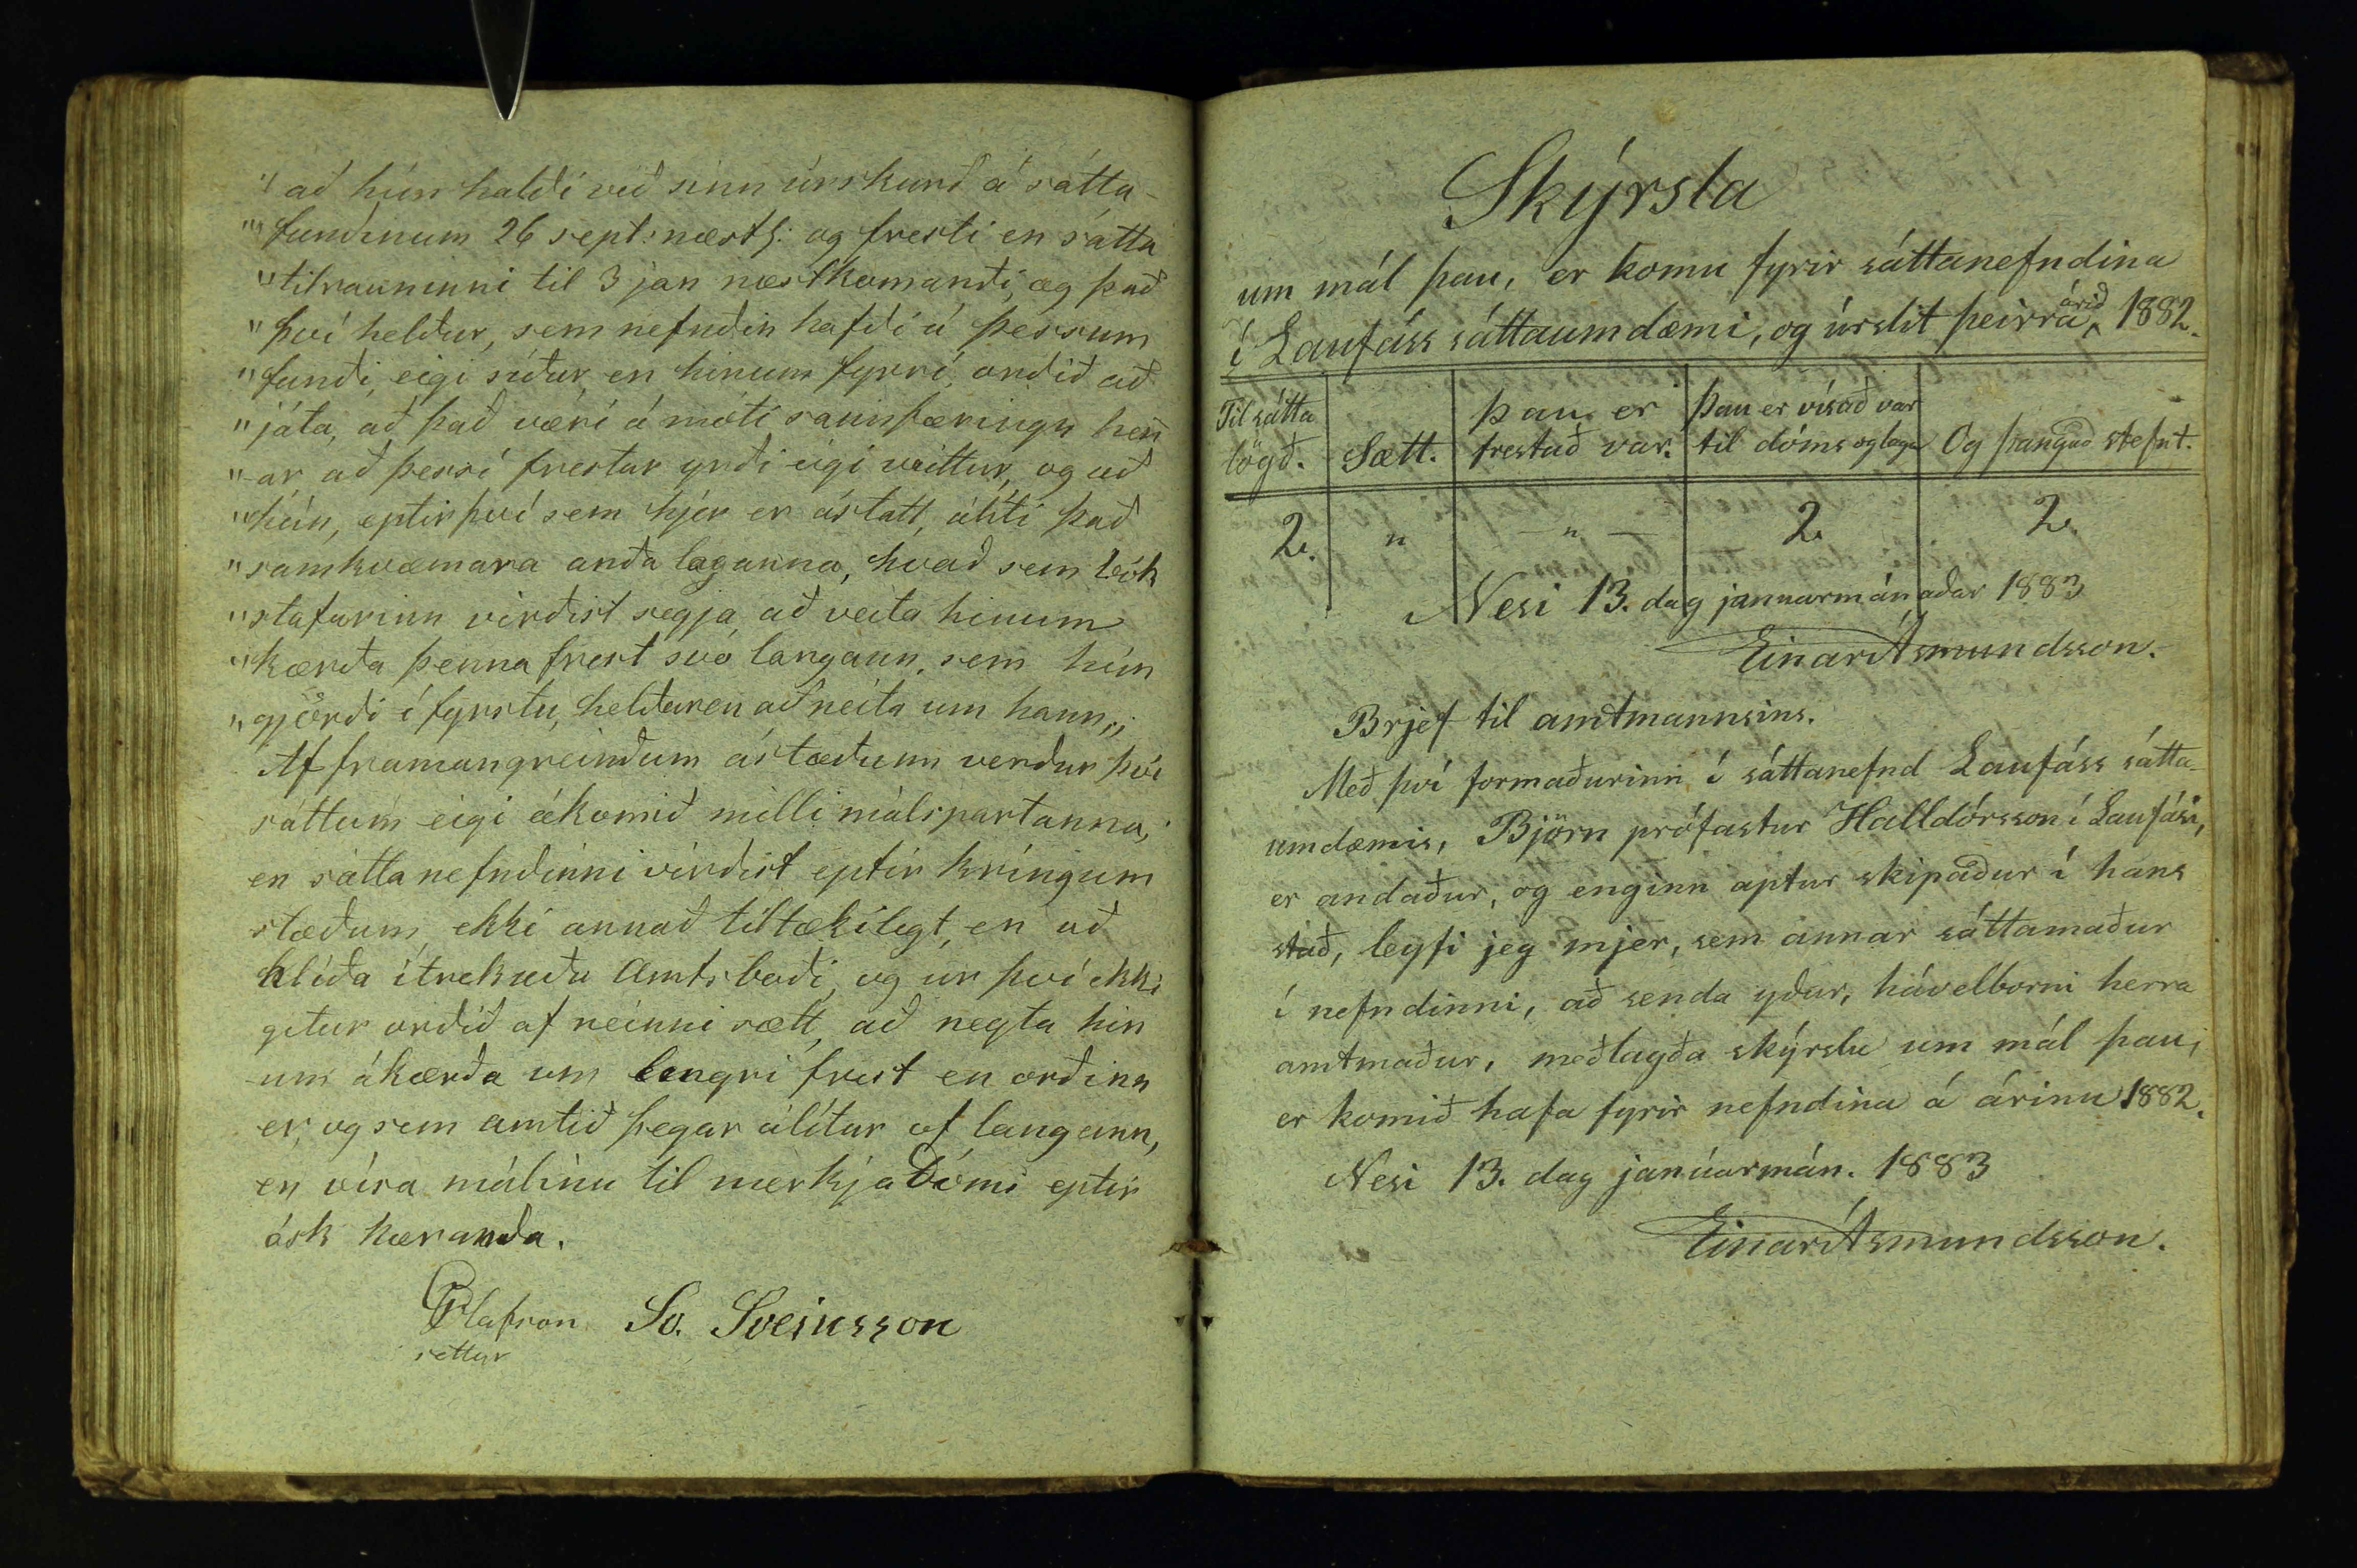 "að hún haldi við sinn úrskurð á sátta-
"fundinum 26 sept: næstl: og fresti en sátta
"tilrauninni til 3 jan næstkomandi, og það
"því heldur, sem nefndin hafði á þessum
"fundi eigi síður en hinum fyrri, orðið að
"játa, að það væri á móti sannfæringu henn
"-ar að þessi frestur yrði eigi veittur, og að
"hún, eptir því sem hjer er ástatt, áliti það
"samkvæmara anda laganna, hvað sem bók
"stafurinn virðist segja að veita hinum
"kærða þenna frest svo langann, sem hún
"gjörði í fyrstu, heldur en að neita um hann„
Af framangreindum ástæðum verður því
sáttum eigi ákomið milli málspartanna,
en sáttanefndinni virðist eptir kringum
stæðum, ekki annað tiltækilegt, en að
hlíða ítrekuðu Amtsboði, og úr því ekki
getur orðið af neinni sætt, að negta hin
um ákærða um lengri frest en orðinn
er, og sem amtið þegar álítur of langann,
en vísa málinu til merkjadómi eptir
ósk kæranda.
Olafsson Sv. Sveinsson
settur
Skýrsla
um mál þau, er komu fyrir sáttanefndina
í Laufáss sáttaumdæmi, og úrslit þeirra árið 1882.
Til sátta lögð. Sætt. Þau er frestað var. Þau er vísað var til dóms og laga Og þangað stefnt.
2. " — " — 2. 2.
Nesi 13. dag januarmánaðar 1883
Einar Ásmundsson.
Brjef til amtmannsins.
Með því formaðurinn í sáttanefnd Laufáss sátta-
umdæmis, Björn prófastur Halldórsson í Laufási,
er andaður, og enginn aptur skipaður í hans
stað, leyfi jeg mjer, sem annar sáttamaður
í nefndinni, að senda yður, hávelborni herra
amtmaður, meðlagða skýrslu um mál þau,
er komið hafa fyrir nefndina á árinu 1882.
Nesi 13. dag janúarmán. 1883
Einar Ásmundsson.